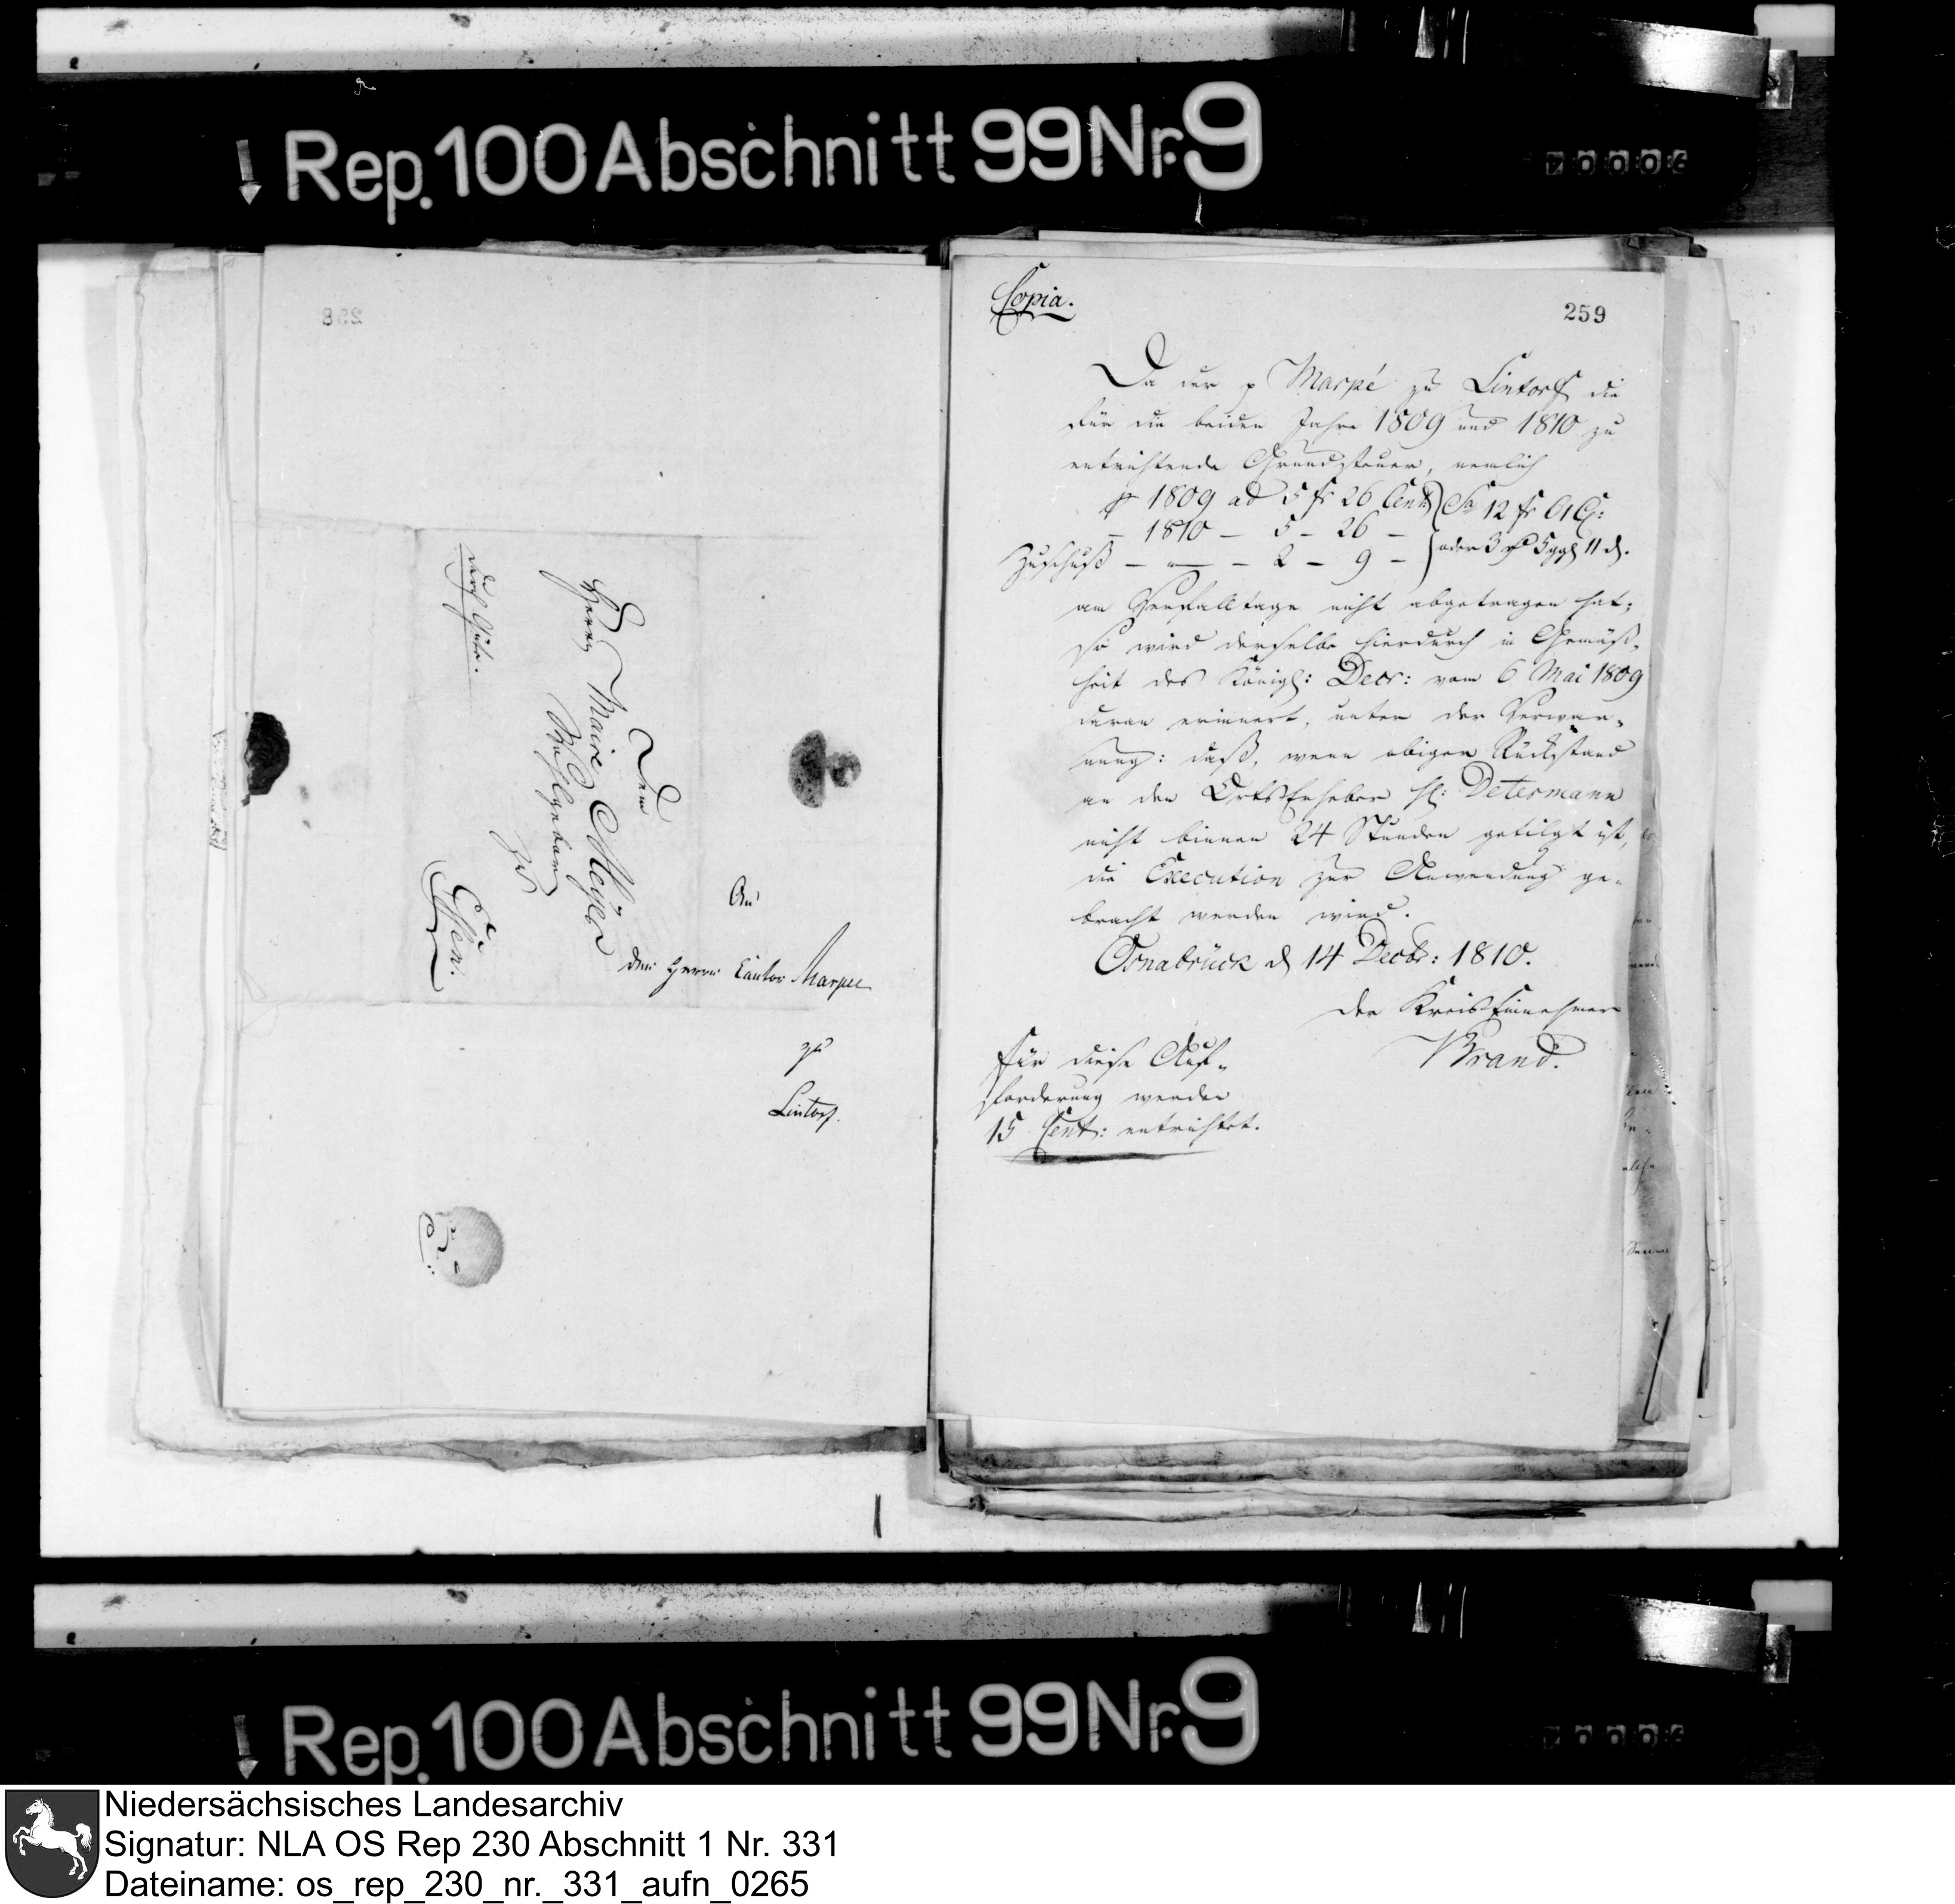 Rep. 100 Abschnitt 99 Nr. 9
258
An
den Herrn Cantor Marpee
zu
Lintorf.
Dem
Herrn Maire Meyer
Wohlgeboren
zu
Essen.
durch Güte.
Copia.
259
Da der p Marpé zu Lintorf die
für die beiden Jahre 1809 und 1810 zu
entrichtende Grundsteuer, nemlich
p 1809 ad 5 fr 26 Cent) Sa 12 fr 61 C:
– 1810 – 5 – 26 –
Zuschuß – – – 2 – 9 – } oder 3 rl 5 ggl 11 d.
am Verfalltage nicht abgetragen hat;
so wird derselbe hierdurch in Gemäß-
heit des Königl: Decr: vom 6 Mai 1809
daran erinnert, unter der Verwar-
nung: daß, wenn obiger Rückstand
an den OrtsErheber H: Determann
nicht binnen 24 Stunden getilgt ist,
die Execution zur Anwendung ge-
bracht werden wird.
Osnabrück d 14 Decbr: 1810.
Der KreisEinnehmer
Brand.
Für diese Auf-
forderung werden
15 Cent: entrichtet.
Rep. 100 Abschnitt 99 Nr. 9
Niedersächsisches Landesarchiv
Signatur: NLA OS Rep 230 Abschnitt 1 Nr. 331
Dateiname: os_rep_230_nr._331_aufn_0265